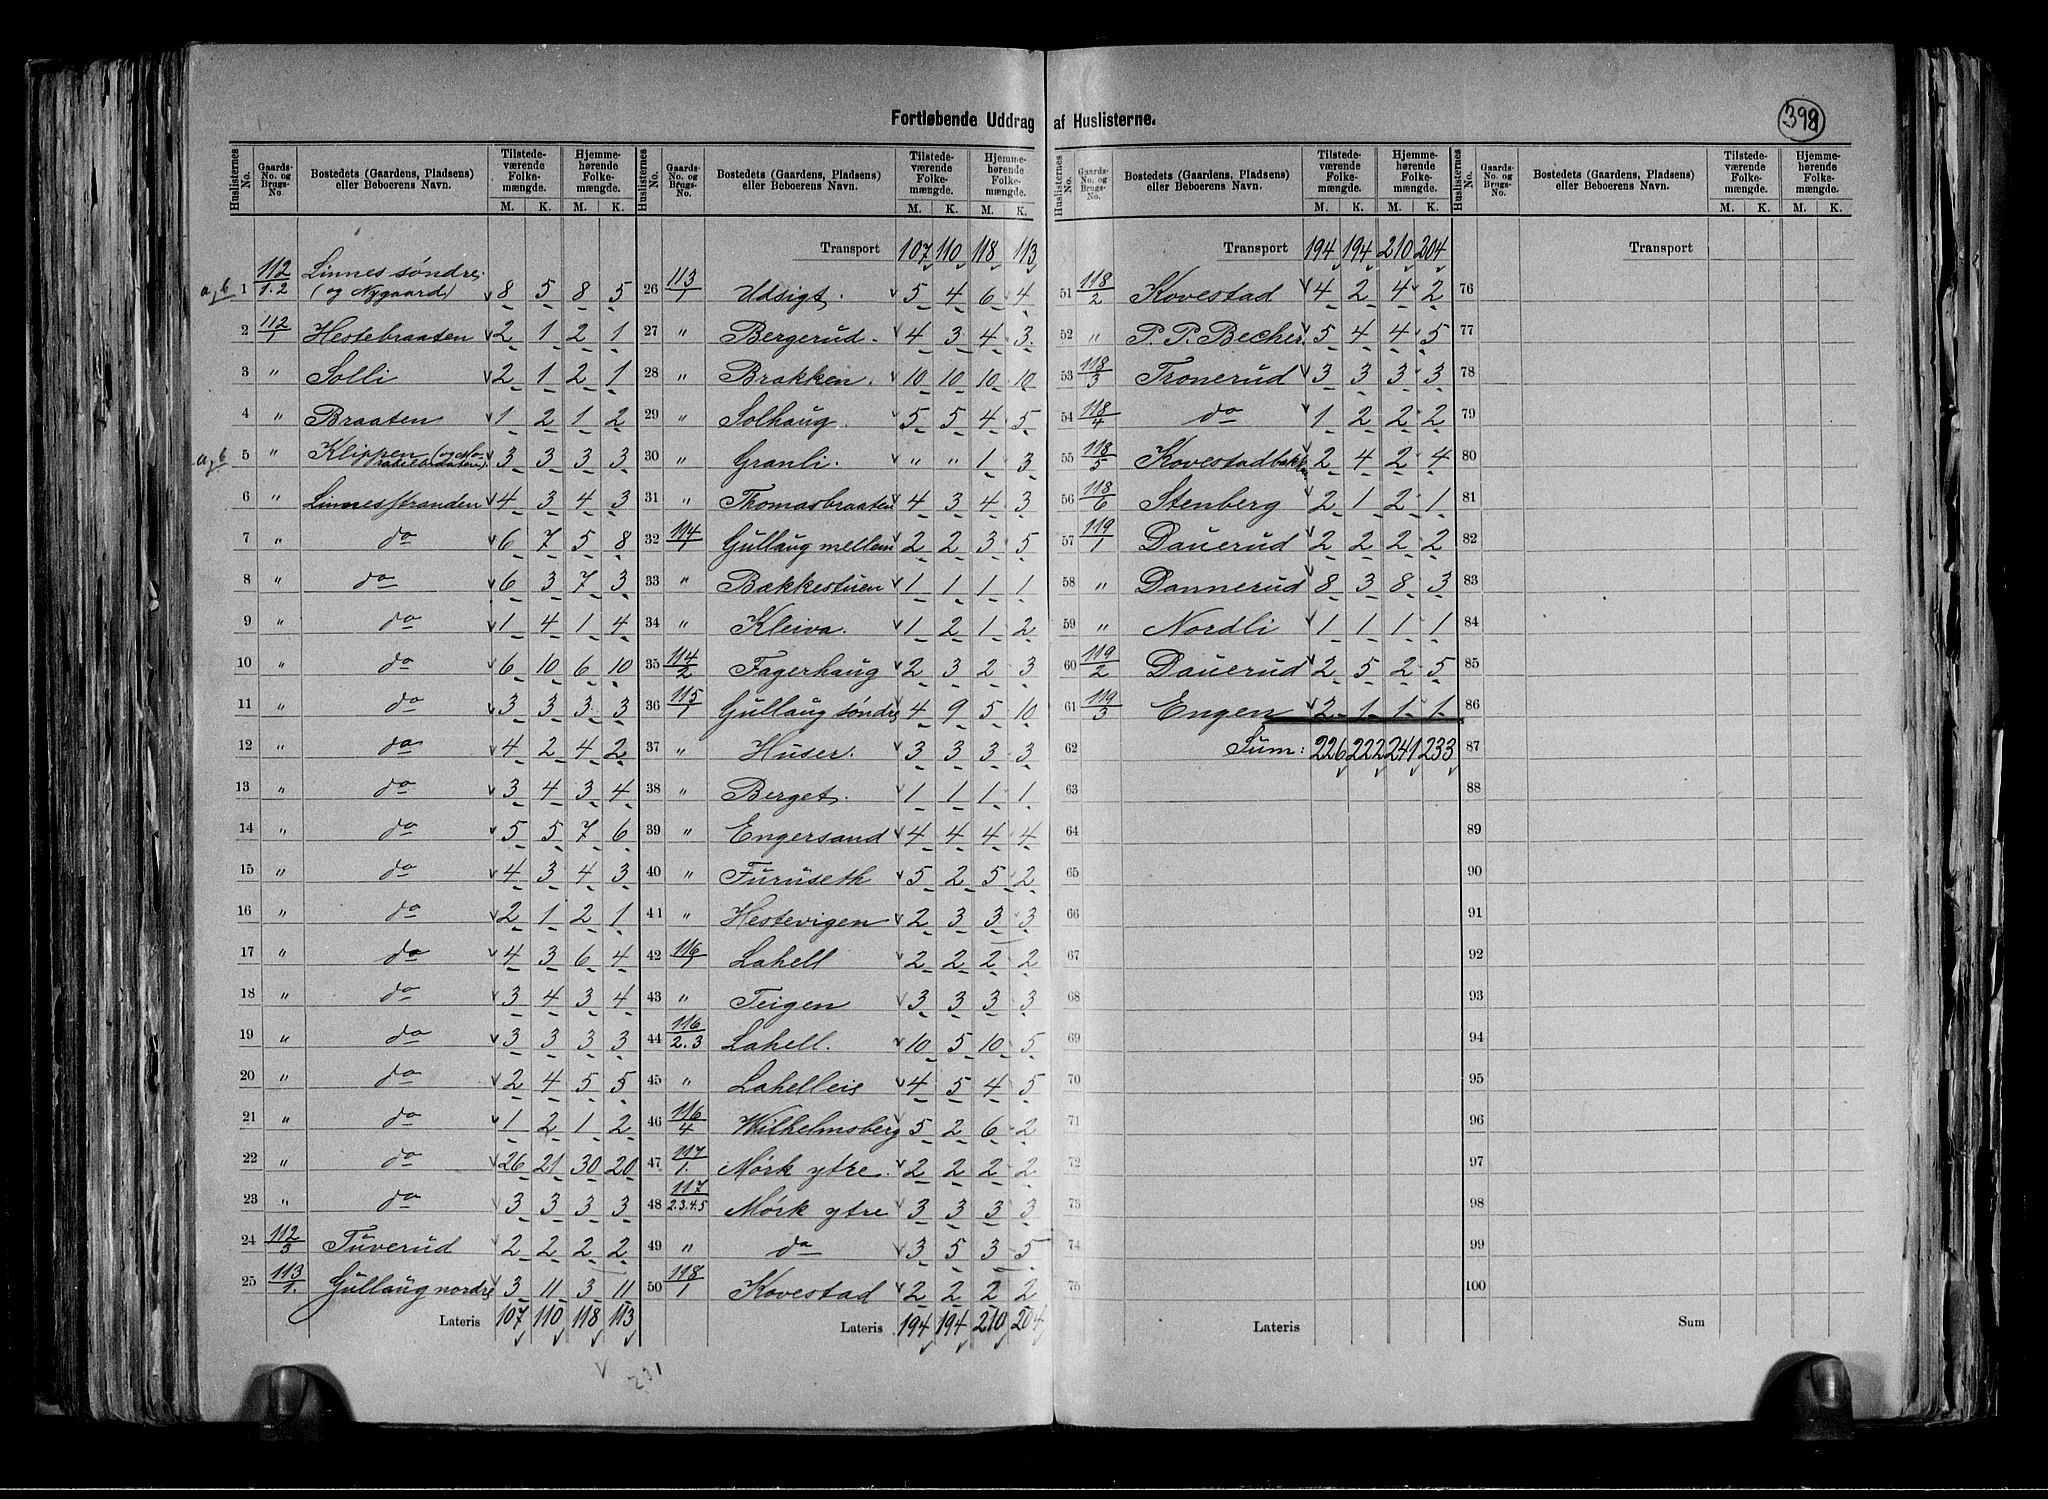 Fortløbende Uddrag af Huslisterne.
398
Huslisternes No. | Gaards-No. og Brugs-No | Bostedets (Gaardens, Pladsens) eller Beboerens Navn. | Tilstedeværende Folkemængde. M. K. | Hjemmehørende Folkemængde. M. K.
a, b 1 112/1.2 Linnes søndre, (og Nygaard) 8 5 8 5
2 112/1 Hestebraaten 2 1 2 1
3 " Solli 2 1 2 1
4 " Braaten 1 2 1 2
a, b 5 " Klippen 3 3 3 3
6 " Linnesstranden 4 3 4 3
7 " do 6 7 5 8
8 " do 6 3 7 3
9 " do 1 4 1 4
10 " do 6 10 6 10
11 " do 3 3 3 3
12 " do 4 2 4 2
13 " do 3 4 3 4
14 " do 5 5 7 6
15 " do 4 3 4 3
16 " do 2 1 2 1
17 " do 4 3 6 4
18 " do 3 4 3 4
19 " do 3 3 3 3
20 " do 2 4 5 5
21 " do 1 2 1 2
22 " do 26 21 30 20
23 " do 3 3 3 3
24 112/3 Tuverud 2 2 2 2
25 113/1. Gullaug nordre 3 11 3 11
Lateris 107 110 118 113
231
Huslisternes No. | Gaards-No. og Brugs-No. | Bostedets (Gaardens, Pladsens) eller Beboerens Navn. | Tilstedeværende Folkemængde. M. K. | Hjemmehørende Folkemængde. M. K.
Transport 107 110 118 113
26 113/1 Udsigt. 5 4 6 4
27 " Bergerud. 4 3 4 3
28 " Brakken. 10 10 10 10
29 " Solhaug. 5 5 4 5
30 " Granli. " " 1 3
31 " Thomasbraaten 4 3 4 3
32 114/1 Gullaug mellem 2 2 3 5
33 " Bakkestuen 1 1 1 1
34 " Kleiva. 1 2 1 2
35 114/2 Fagerhaug 2 3 2 3
36 115/1 Gullaug søndre 4 9 5 10
37 " Huser. 3 3 3 3
38 " Berget. 1 1 1 1
39 " Engersand 4 4 4 4
40 " Furuseth 5 2 5 2
41 " Hestevigen 2 3 3 3
42 116/1 Lahell 2 2 2 2
43 " Teigen 3 3 3 3
44 116/2.3 Lahell. 10 5 10 5
45 " Lahelleie 4 5 4 5
46 116/4 Wilhelmsberg 5 2 6 2
47 117/1. Mørk ytre. 2 2 2 2
48 117/2.3.4.5 Mørk ytre 3 3 3 3
49 " do 3 5 3 5
50 118/1 Kovestad 2 2 2 2
Lateris 194 194 210 204
Huslisternes No. | Gaards-No. og Brugs-No. | Bostedets (Gaardens, Pladsens) eller Beboerens Navn. | Tilstedeværende Folkemængde. M. K. | Hjemmehørende Folkemængde. M. K.
Transport 194 194 210 204
51 118/2 Kovestad 4 2 4 2
52 " P. P. Becher. 5 4 4 5
53 118/3 Tronerud 3 3 3 3
54 118/4 do 1 2 2 2
55 118/5 Kovestadbakken 2 4 2 4
56 118/6 Stenberg 2 1 2 1
57 119/1 Dauerud 2 2 2 2
58 " Dannerud 8 3 8 3
59 " Nordli 1 1 1 1
60 119/2 Dauerud 2 5 2 5
61 119/3 Engen 2 1 1 1
62 Sum: 226 222 241 233
63
64
65
66
67
68
69
70
71
72
73
74
75
Lateris
Huslisternes No. | Gaards-No. og Brugs-No. | Bostedets (Gaardens, Pladsens) eller Beboerens Navn. | Tilstedeværende Folkemængde. M. K. | Hjemmehørende Folkemængde. M. K.
Transport
76
77
78
79
80
81
82
83
84
85
86
87
88
89
90
91
92
93
94
95
96
97
98
99
100
Sum